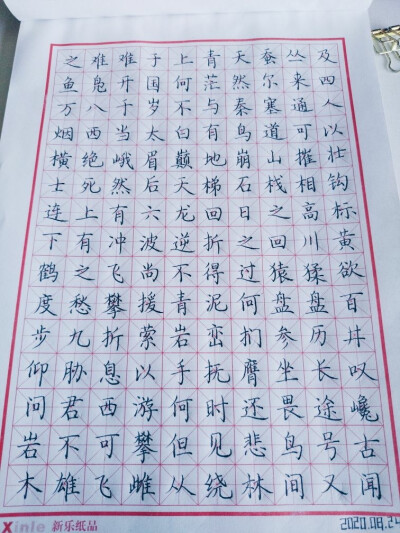 之难难于上青天蚕丛及
鱼凫开国何茫然尔来四
万八千岁不与秦塞通人
烟西当太白有鸟道可以
横绝峨眉巅地崩山摧壮
士死然后天梯石栈相钩
连上有六龙回日之高标
下有冲波逆折之回川黄
鹤之飞尚不得过猿猱欲
度愁攀援青泥何盘盘百
步九折萦岩峦扪参历井
仰胁息以手抚膺坐长叹
问君西游何时还畏途巉
岩不可攀但见悲鸟号古
木雄飞雌从绕林间又闻
Xinle 新乐纸品
2020.08.24